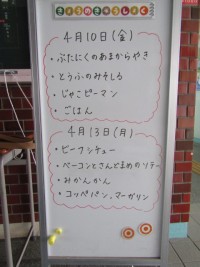 きょうのきゅうしょく
4月10日(金)
・ぶたにくのあまからやき
・とうふのみそしる
・じゃこピーマン
・ごはん
4月13日(月)
・ビーフシチュー
・ベーコンとさんどまめのソテー
・みかんかん
・コッペパン、マーガリン